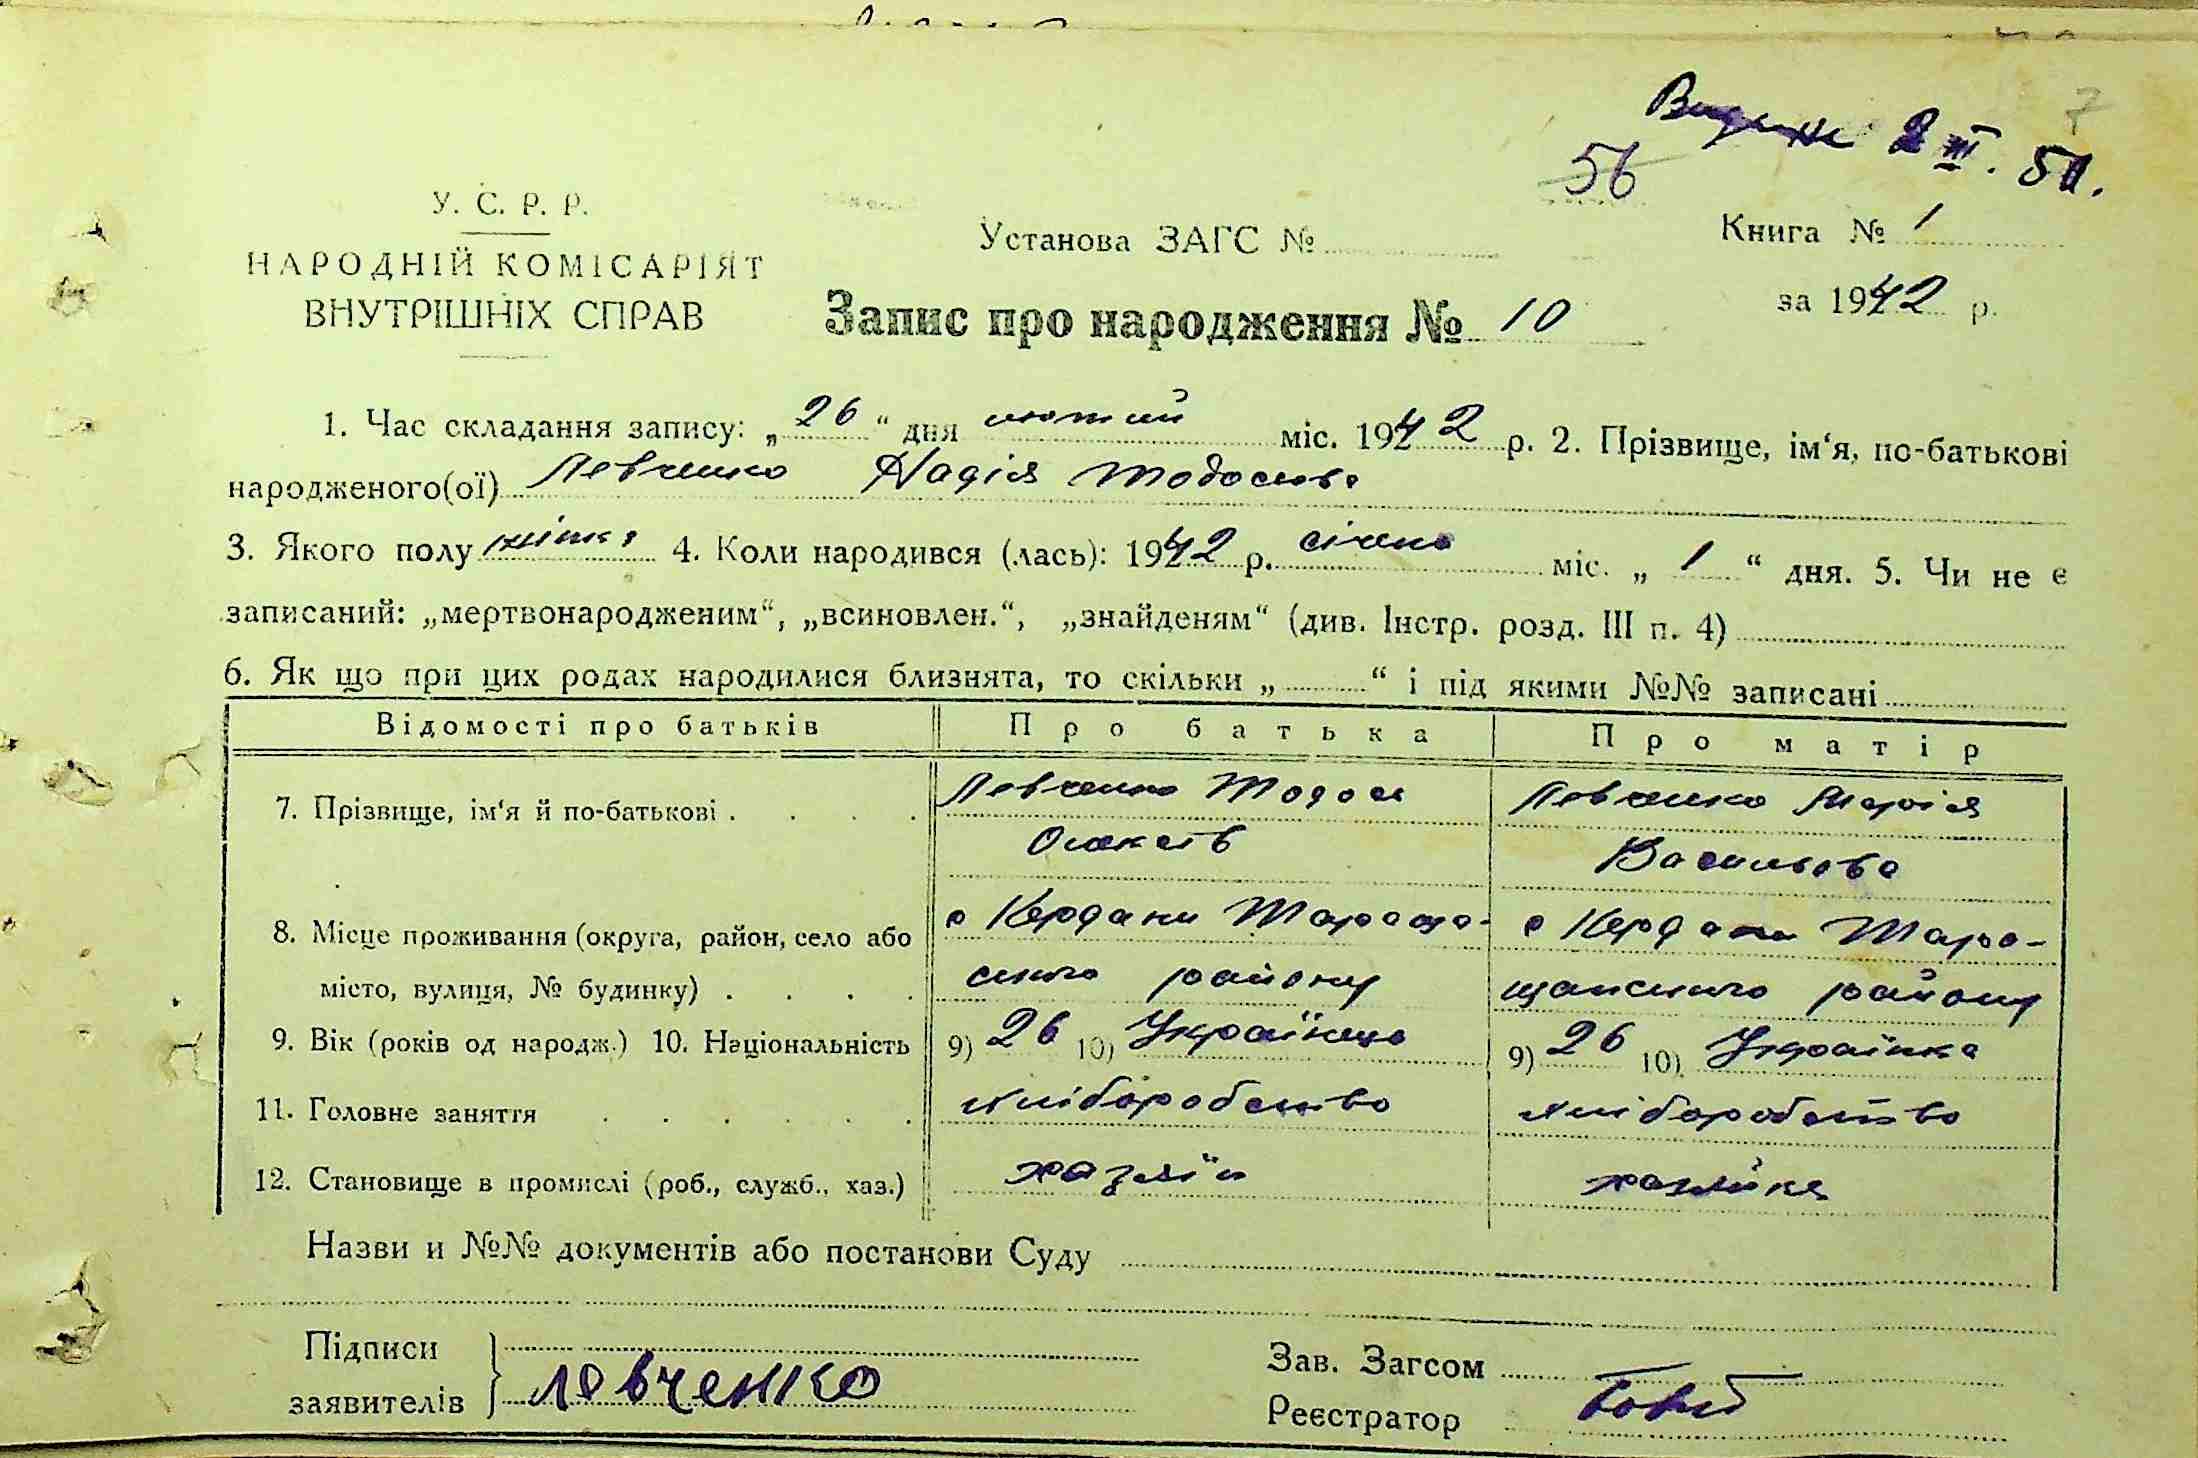 7
2 III. 51.
56
У. С. Р. Р.
НАРОДНІЙ КОМІСАРІЯТ
ВНУТРІШНІХ СПРАВ
Установа ЗАГС №
Книга № 1
за 1942 р.
Запис про народження № 10
1. Час складання запису: „26“ дня лютий міс. 1942 р. 2. Прізвище, ім‘я, по-батькові
народженого(ої) Левченко Надія Тодосова
3. Якого полу жіноч 4. Коли народився (лась): 1942 р. січень міс. „1“ дня. 5. Чи не є
записаний: „мертвонародженим“, „всиновлен.“, „знайденям“ (див. Інстр. розд. III п. 4)
6. Як що при цих родах народилися близнята, то скільки „ “ і під якими №№ записані
Відомості про батьків Про батька Про матір
7. Прізвище, ім‘я й по-батькові . . . . Левченко Тодос Левченко Марія
Васильова
8. Місце проживання (округа, район, село або с Кердани Тараща- с Кердани Тара-
місто, вулиця, № будинку) . . . . нського району щанського району
9. Вік (років од народж.) 10. Національність 9) 26 10) Українець 9) 26 10) Українка
11. Головне заняття . . . . . . хліборобство хліборобство
12. Становище в промислі (роб., служб., хаз.) хазяїн хазяйка
Назви и №№ документів або постанови Суду
Підписи
заявителів } Левченко
Зав. Загсом
Реєстратор